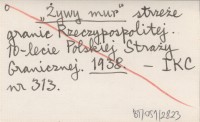 „Żywy mur” strzeże
granic Rzeczypospolitej.
10-lecie Polskiej Straży
Granicznej. 1938 – IKC
nr 313.